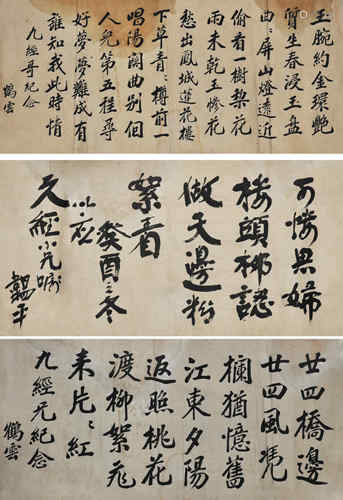 玉腕約金環艷
質生春浸玉盎
曲〻屏山燈遠近
偷看一樹梨花
雨未乾玉慘花
愁出鳳城蓮花樓
下草青〻樽前一
唱陽關曲別個
人兒第五程尋
好夢夢難成有
誰知我此時情
九經哥紀念
鶴雲
可憐思婦
樓頭柳認
做天邊粉
絮看
癸酉之冬
以應
九經小兄囑
平
廿四橋邊
廿四風凭
欄猶憶舊
江東夕陽
返照桃花
渡柳絮飛
來片〻紅
九經兄紀念
鶴雲